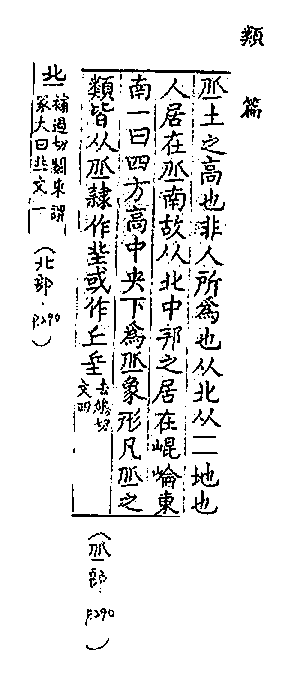 類篇
丠土之高也非人所爲也从北从一一地也
人居在丠南故从北中邦之居在崐崘東
南一曰四方高中央下爲丠象形凡丠之
類皆从丠隷作或作丘
去鳩切
文四
(丠部.P.290)
丠
補過切關東謂
冢大曰丠文一
(北部.P.290)